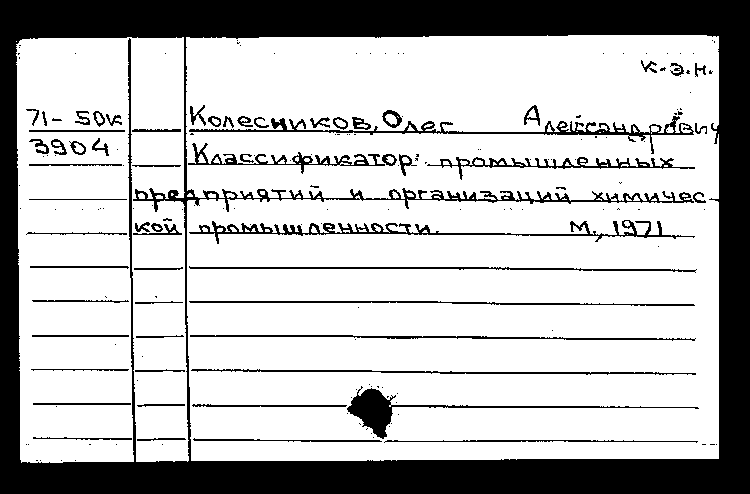 к-э.н.
71-50к Колесников, Олег Александрович
3904 Классификатор промышленных
предприятий и организаций химичес-
кой промышленности. М., 1971.